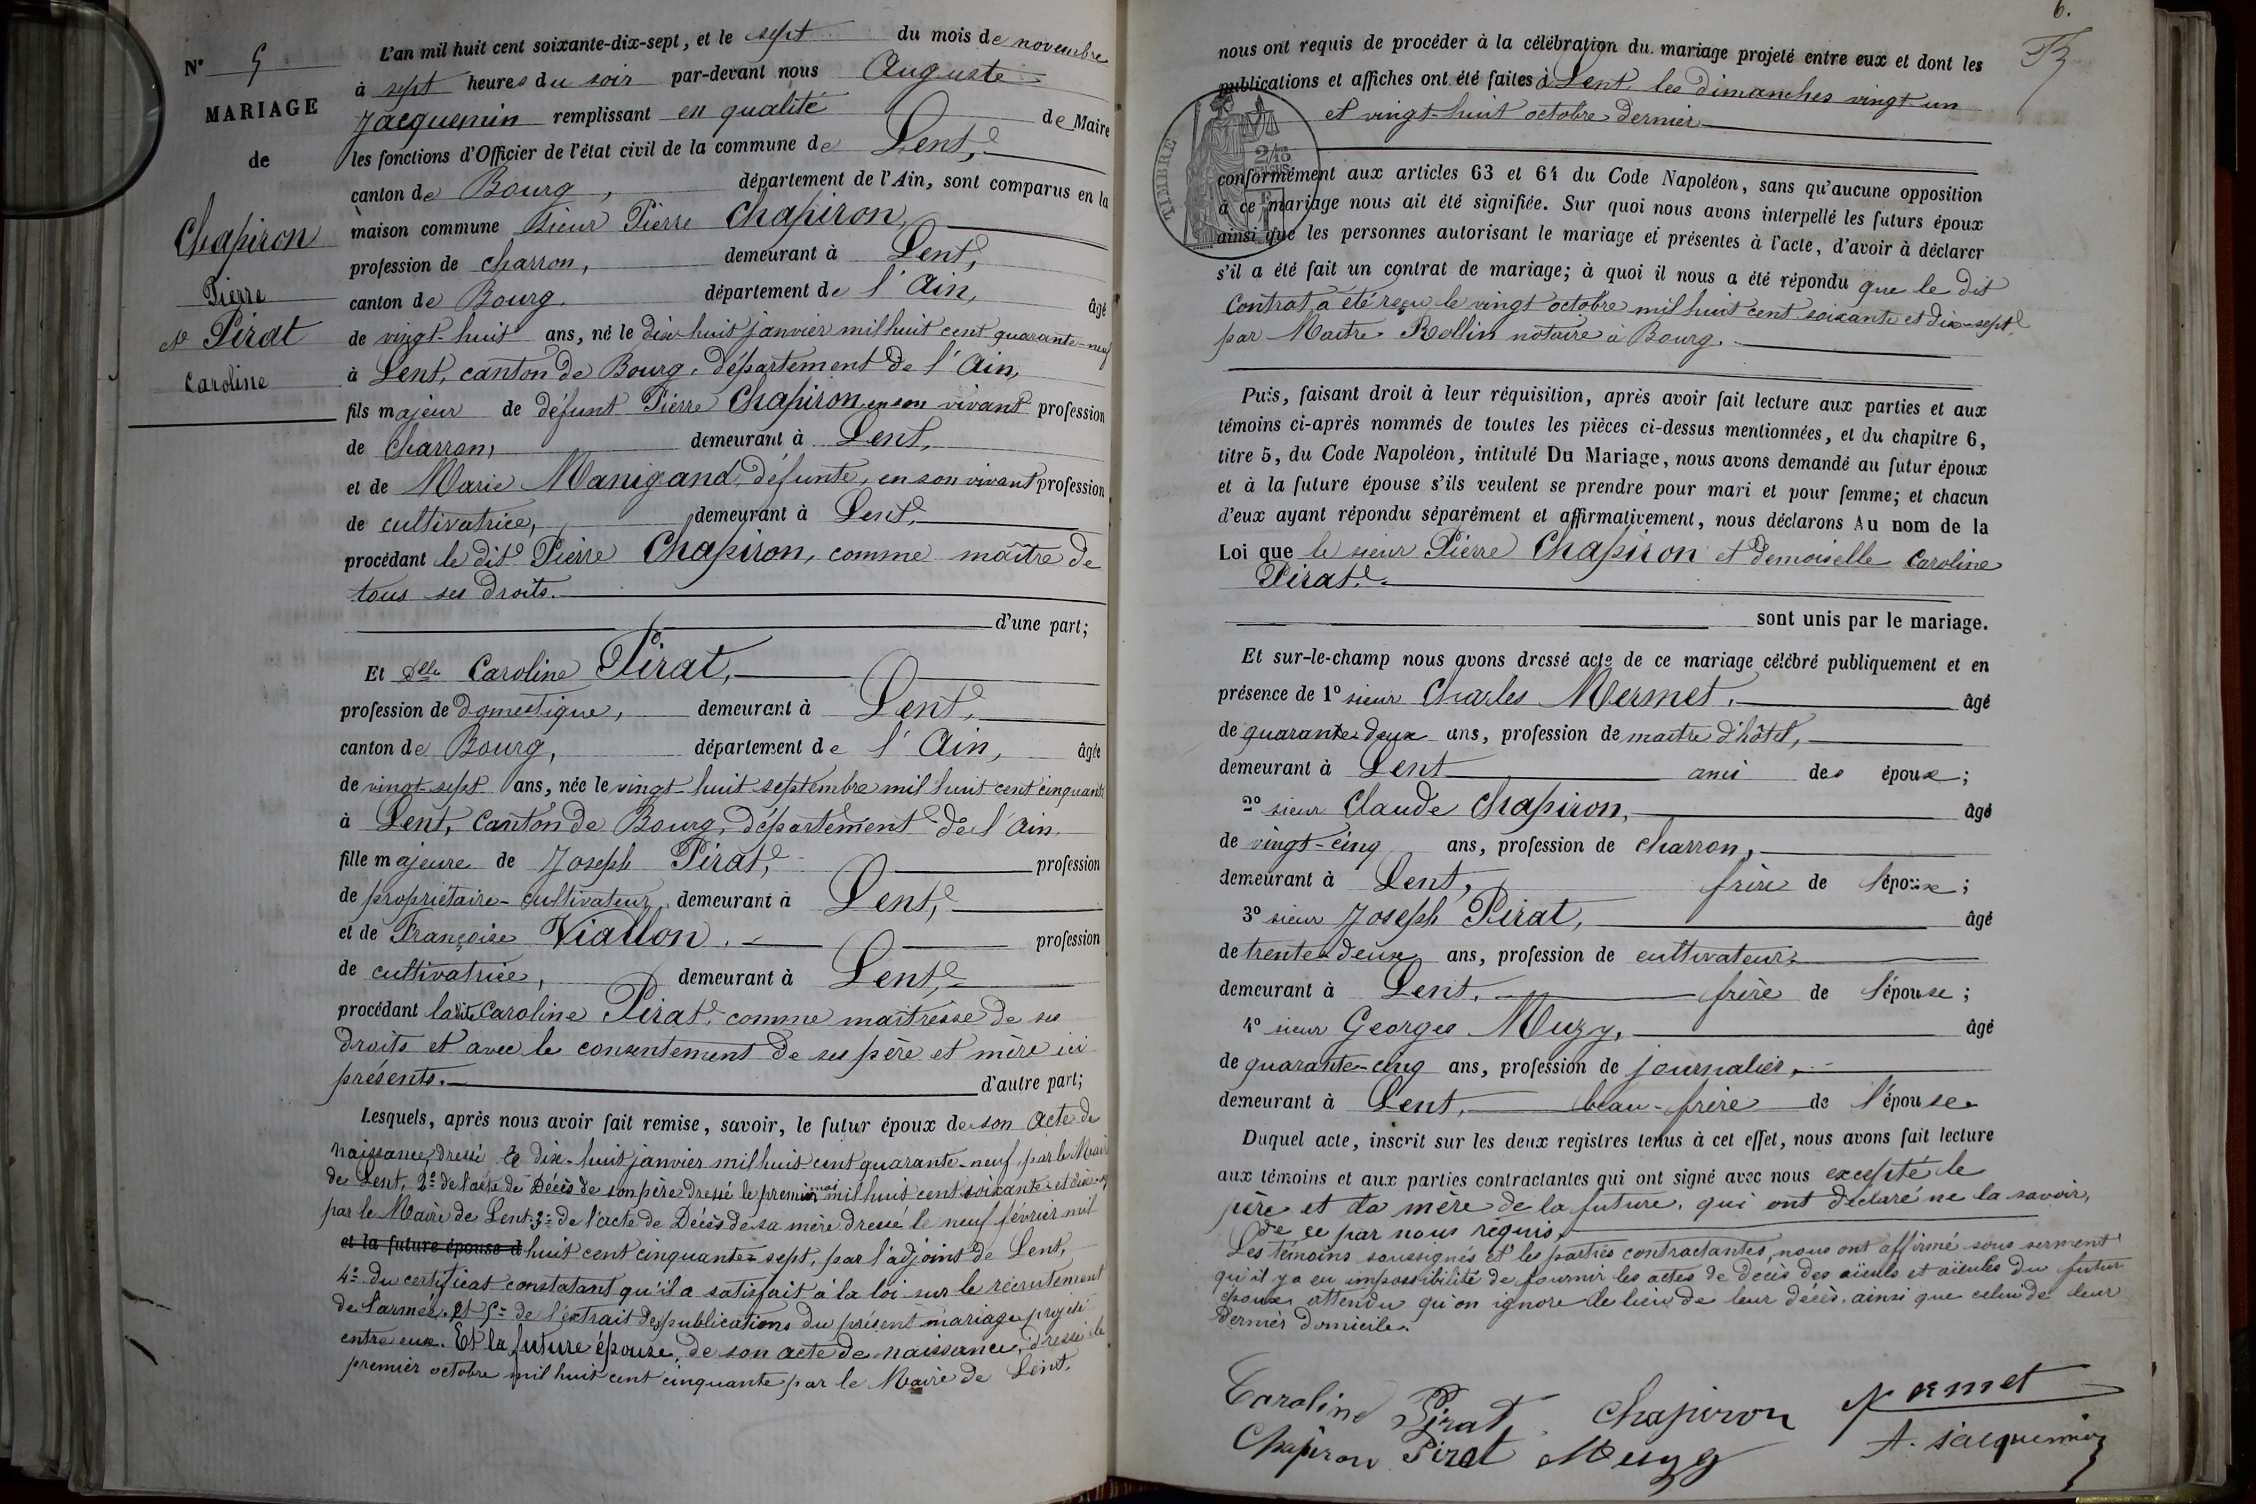 N° 5
MARIAGE
de
Chapiron
Pierre
et Pirat
Caroline
L'an mil huit cent soixante-dix-sept, et le sept du mois de novembre
à sept heures du soir par-devant nous Auguste
Jacquemin remplissant en qualité de Maire
les fonctions d'Officier de l'état civil de la commune de Lent,
canton de Bourg, département de l'Ain, sont comparus en la
maison commune Sieur Pierre Chapiron,
profession de charron, demeurant à Lent,
canton de Bourg. département de l'Ain, âgé
de vingt-huit ans, né le dix huit janvier mil huit cent quarante-neuf
à Lent, canton de Bourg, département de l'Ain,
fils majeur de défunt Pierre Chapiron en son vivant profession
de charron, demeurant à Lent,
et de Marie Manigand, défunte, en son vivant profession
de cultivatrice, demeurant à Lent,
procédant le dit Pierre Chapiron, comme maître de
tous ses droits.
d'une part;
Et Delle Caroline Pirat,
profession de domestique, demeurant à Lent,
canton de Bourg, département de l'Ain, âgée
de vingt-sept ans, née le vingt-huit septembre mil huit cent cinquante
à Lent, Canton de Bourg, département de l'Ain
fille majeure de Joseph Pirat, profession
de propriétaire-cultivateur, demeurant à Lent,
et de Françoise Viallon, profession
de cultivatrice, demeurant à Lent,
procédant la dite Caroline Pirat, comme maîtresse de ses
droits et avec le consentement de ses père et mère ici
présents. d'autre part;
Lesquels, après nous avoir fait remise, savoir, le futur époux de son acte de
naissance, dressé le dix-huit janvier mil huit cent quarante-neuf, par le Maire
de Lent, 2° de l'acte de Décès de son père dressé le premier mai mil huit cent soixante et dix-
par le Maire de Lent, 3° de l'acte de Décès de sa mère dressé le neuf février mil
et la future épouse d huit cent cinquante-sept, par l'adjoint de Lent,
4° du certificat constatant qu'il a satisfait à la loi sur le recrutement
de l'armée, et 5° de l'extrait des publications du présent mariage projeté
entre eux. Et la future épouse, de son acte de naissance, dressé le
premier octobre mil huit cent cinquante par le Maire de Lent.
6.
nous ont requis de procéder à la célébration du mariage projeté entre eux et dont les
publications et affiches ont été faites à Lent, les dimanches vingt-un
et vingt-huit octobre dernier
TIMBRE
2/10
conformément aux articles 63 et 64 du Code Napoléon, sans qu'aucune opposition
à ce mariage nous ait été signifiée. Sur quoi nous avons interpellé les futurs époux
ainsi que les personnes autorisant le mariage et présentes à l'acte, d'avoir à déclarer
s'il a été fait un contrat de mariage; à quoi il nous a été répondu que le dit
Contrat a été reçu le vingt octobre mil huit cent soixante et dix-sept
par Maitre Rollin notaire à Bourg.
Puis, faisant droit à leur réquisition, après avoir fait lecture aux parties et aux
témoins ci-après nommés de toutes les pièces ci-dessus mentionnées, et du chapitre 6,
titre 5, du Code Napoléon, intitulé Du Mariage, nous avons demandé au futur époux
et à la future épouse s'ils veulent se prendre pour mari et pour femme; et chacun
d'eux ayant répondu séparément et affirmativement, nous déclarons Au nom de la
Loi que le sieur Pierre Chapiron et demoiselle Caroline
Pirat
sont unis par le mariage.
Et sur-le-champ nous avons dressé acte de ce mariage célébré publiquement et en
présence de 1° sieur Charles Mermet, âgé
de quarante-deux ans, profession de maitre d'hôtel,
demeurant à Lent ami des époux;
2° sieur Claude Chapiron, âgé
de vingt-cinq ans, profession de charron,
demeurant à Lent, frère de l'époux;
3° sieur Joseph Pirat, âgé
de trente-deux ans, profession de cultivateur,
demeurant à Lent, frère de l'épouse;
4° sieur Georges Muzy, âgé
de quarante-cinq ans, profession de journalier,
demeurant à Lent, beau-frère de l'épouse
Duquel acte, inscrit sur les deux registres tenus à cet effet, nous avons fait lecture
aux témoins et aux parties contractantes qui ont signé avec nous excepté le
père et la mère de la future, qui ont déclaré ne la savoir,
de ce par nous requis.
Les témoins soussignés et les parties contractantes, nous ont affirmé sous serment
qu'il y a eu impossibilité de fournir les actes de décès des aïeuls et aïeules du futur
époux, attendu qu'on ignore le lieu de leur décès, ainsi que celui de leur
dernier domicile.
Caroline Pirat Chapiron Mermet
Chapiron Pirat Muzy A. Jacquemin